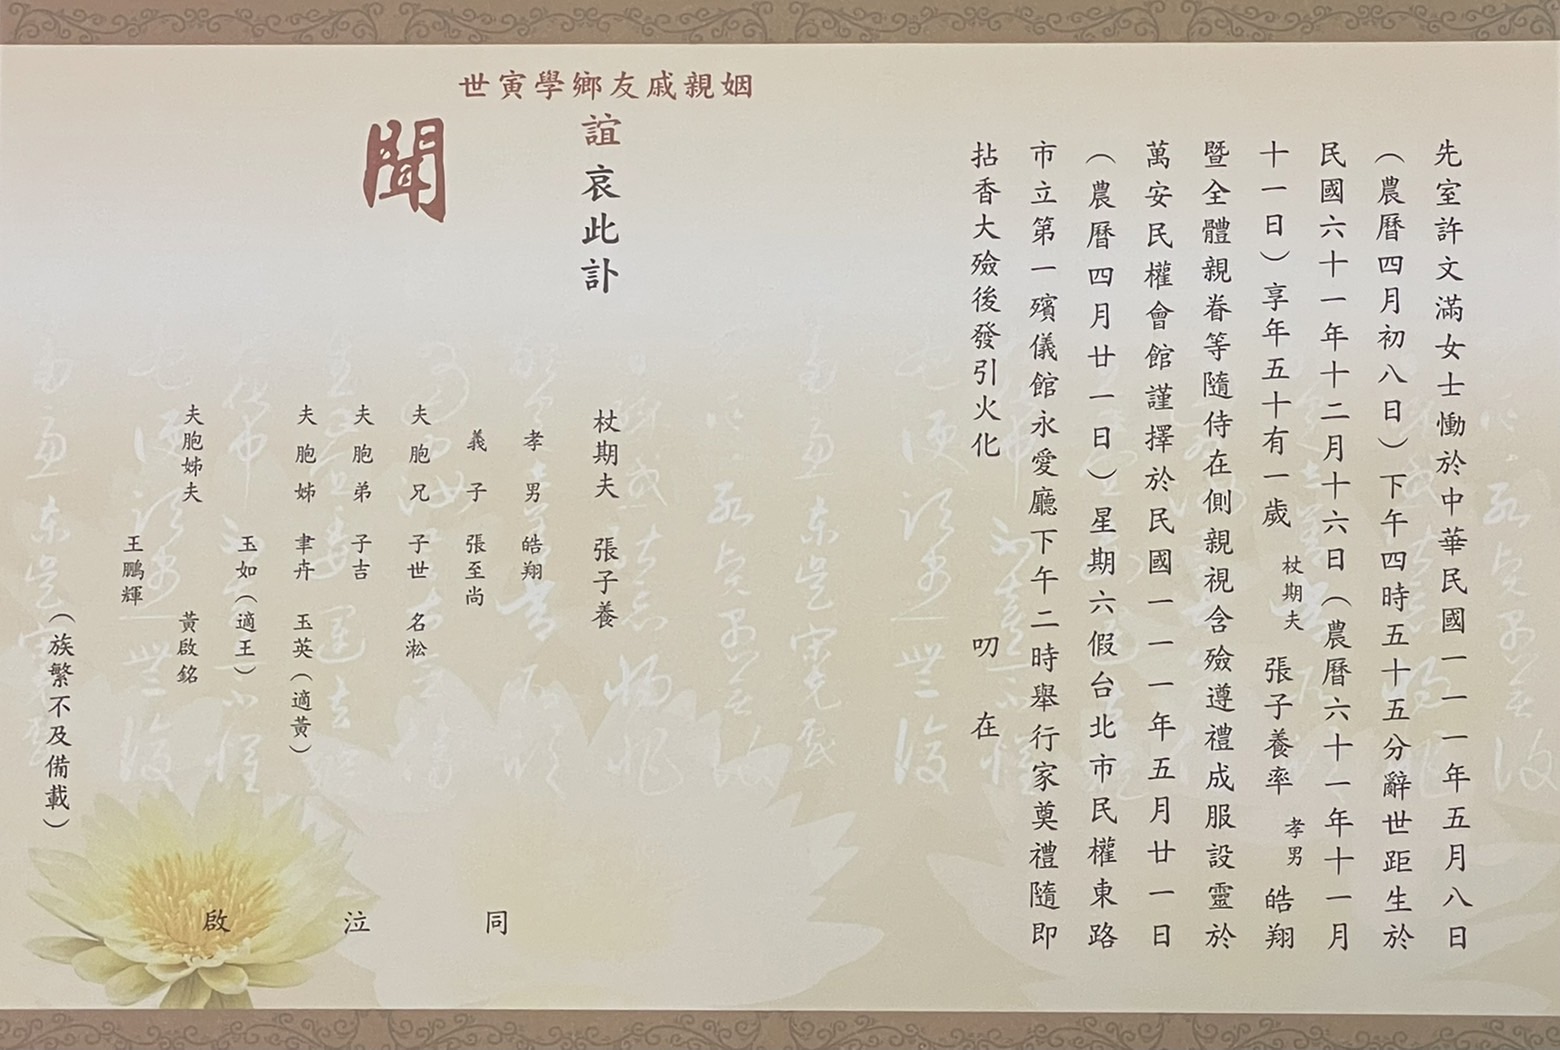 先室許文滿女士慟於中華民國一一一年五月八日
（農曆四月初八日）下午四時五十五分辭世距生於
民國六十一年十二月十六日（農曆六十一年十一月
十一日）享年五十有一歲 杖期夫 張子養率 孝男 皓翔
暨全體親眷等隨侍在側親視含殮遵禮成服設靈於
萬安民權會館謹擇於民國一一一年五月廿一日
（農曆四月廿一日）星期六假台北市民權東路
市立第一殯儀館永愛廳下午二時舉行家奠禮隨即
拈香大殮後發引火化 叨在
姻親戚友鄉學寅世
誼哀此訃
聞
杖期夫 張子養
孝男 皓翔
義子 張至尚
夫胞兄 子世 名淞
夫胞弟 子吉
夫胞姊 聿卉 玉英（適黃）
玉如（適王）
夫胞姊夫 黃啟銘
王鵬輝
（族繁不及備載）
同泣啟